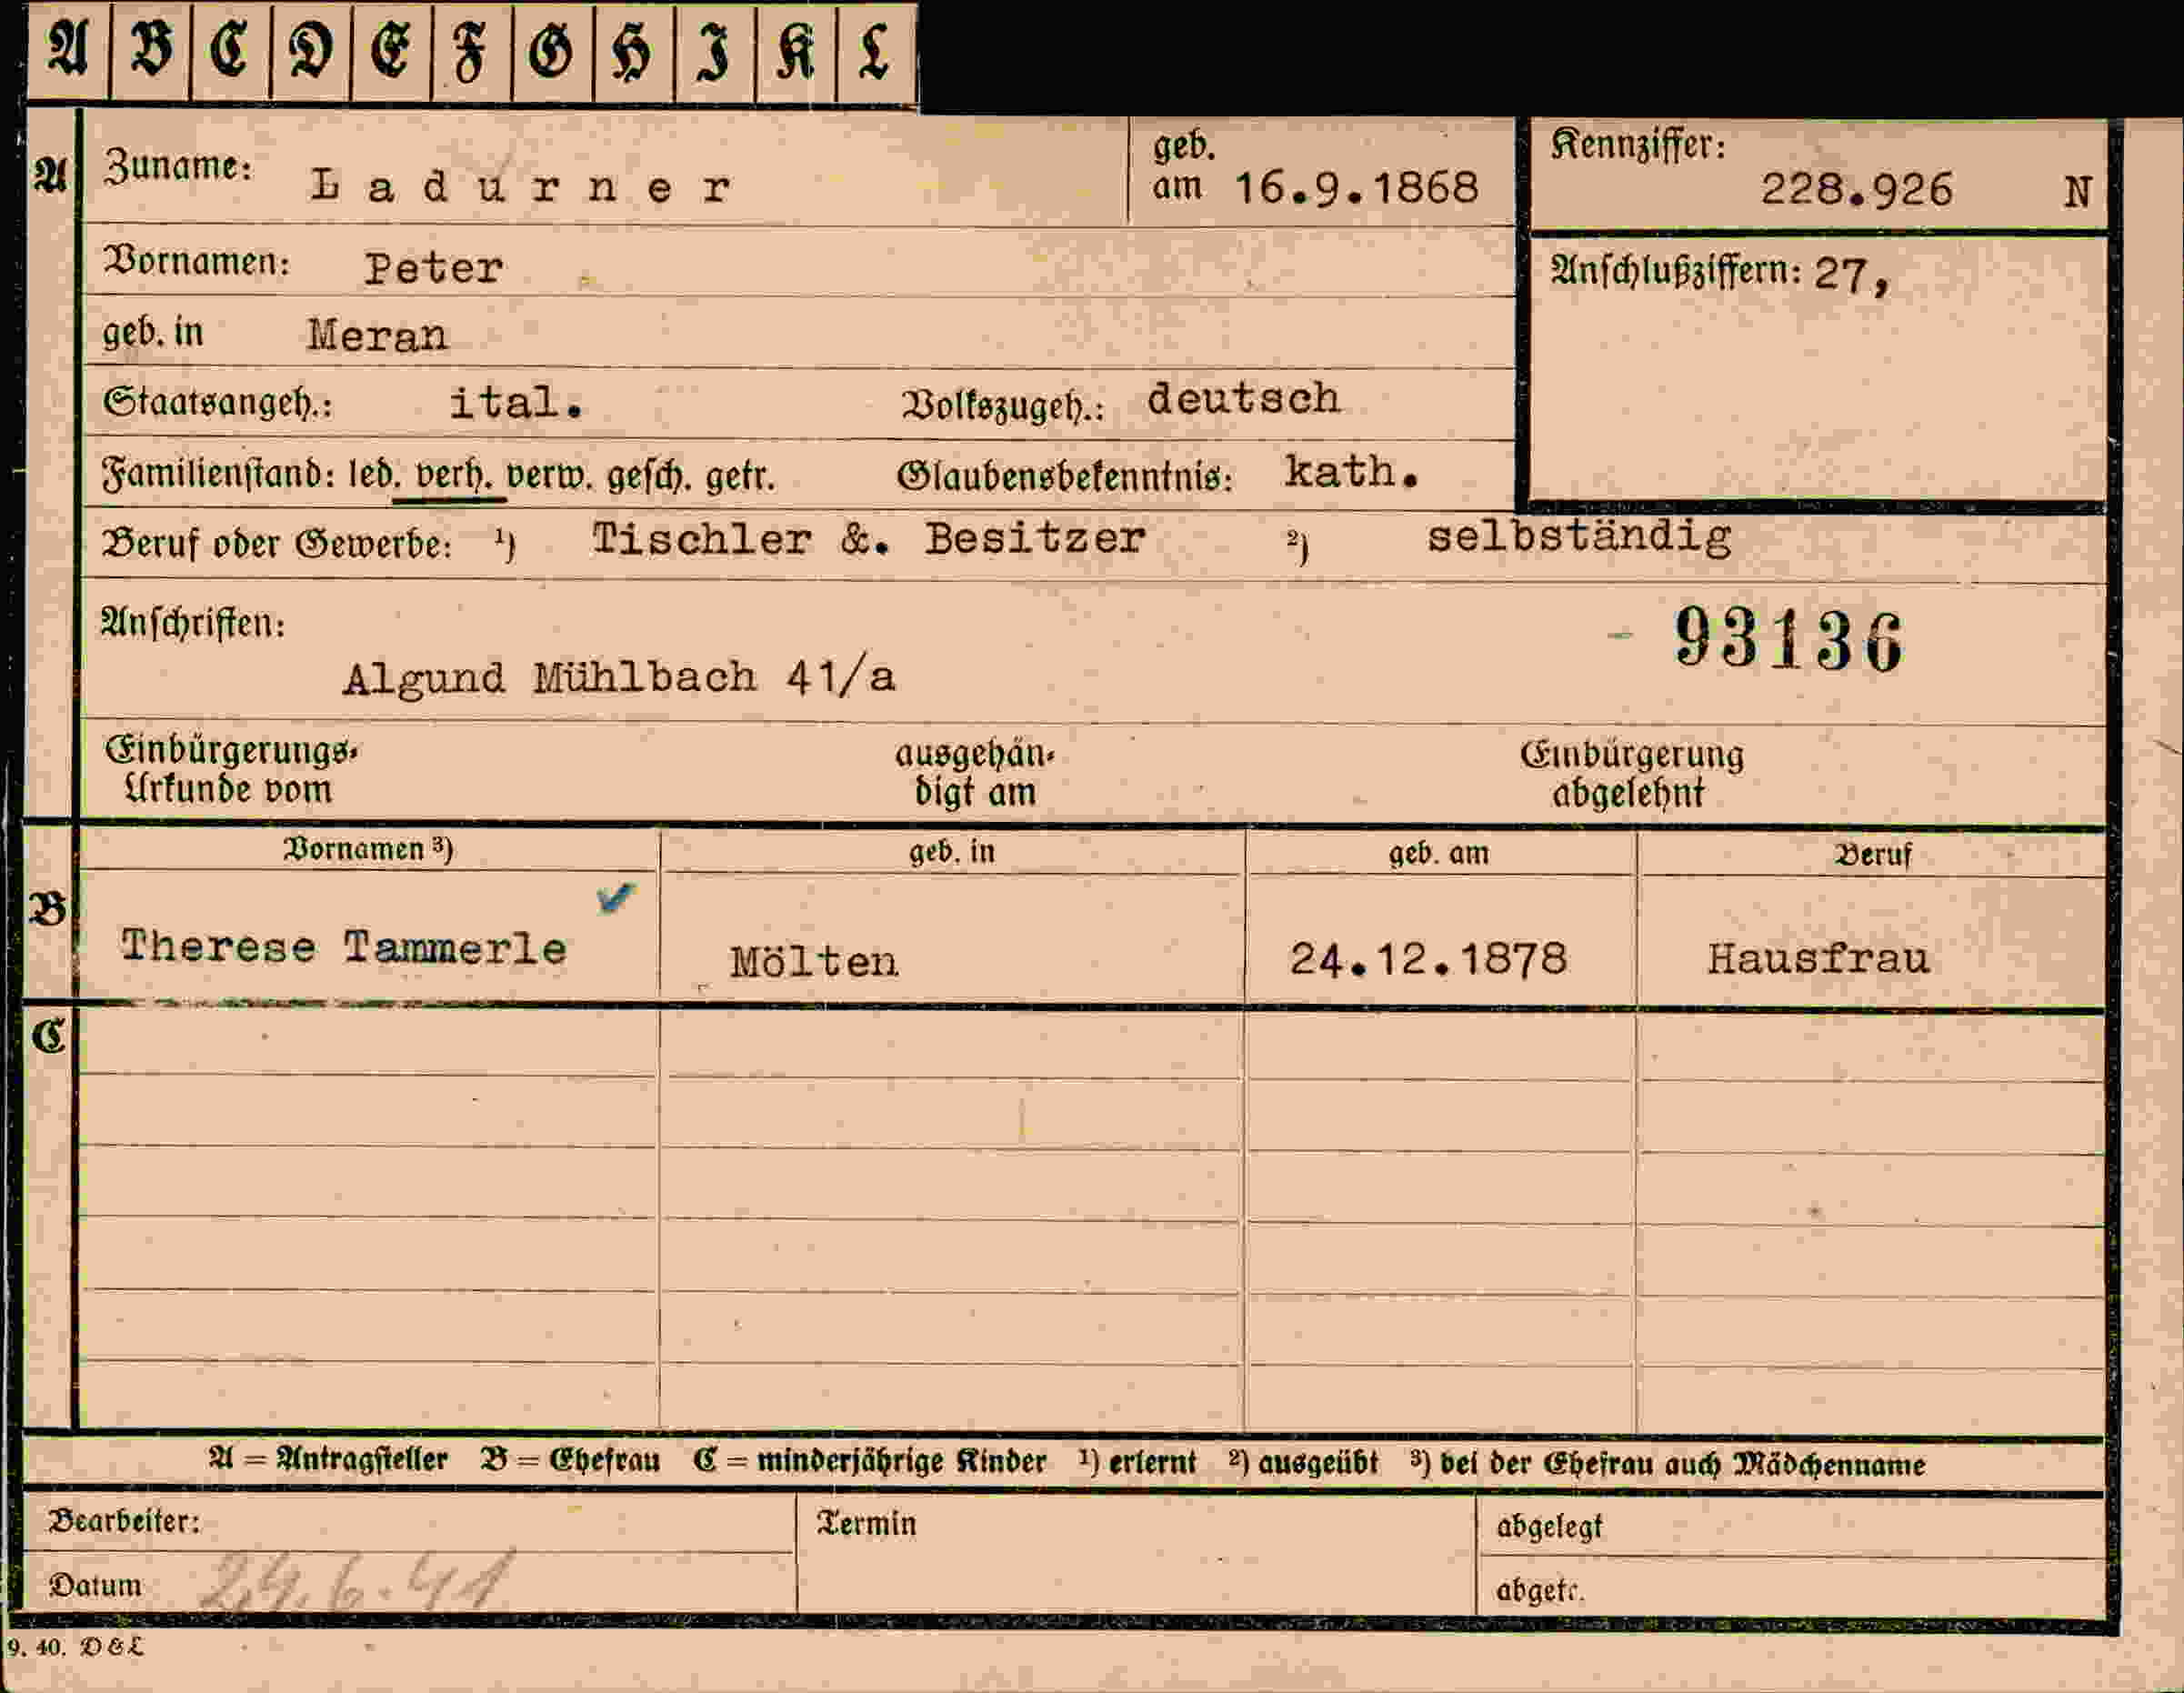 A B C D E F G H I K L
A Zuname: Ladurner geb. am 16.9.1868 Kennziffer: 228.926 N
Vornamen: Peter Anschlußziffern: 27,
geb. in Meran
Staatsangeh.: ital. Volkszugeh.: deutsch
Familienstand: led. verh. verw. gesch. getr. Glaubensbekenntnis: kath.
Beruf oder Gewerbe: ¹) Tischler &. Besitzer ²) selbständig
Anschriften: 93136
Algund Mühlbach 41/a
Einbürgerungs- ausgehän- Einbürgerung
Urkunde vom digt am abgelehnt
Vornamen ³) geb. in geb. am Beruf
B Therese Tammerle Mölten 24.12.1878 Hausfrau
C
A = Antragsteller B = Ehefrau C = minderjährige Kinder ¹) erlernt ²) ausgeübt ³) bei der Ehefrau auch Mädchenname
Bearbeiter: Termin abgelegt
Datum 24.6.41 abgetr.
9. 40. D & L